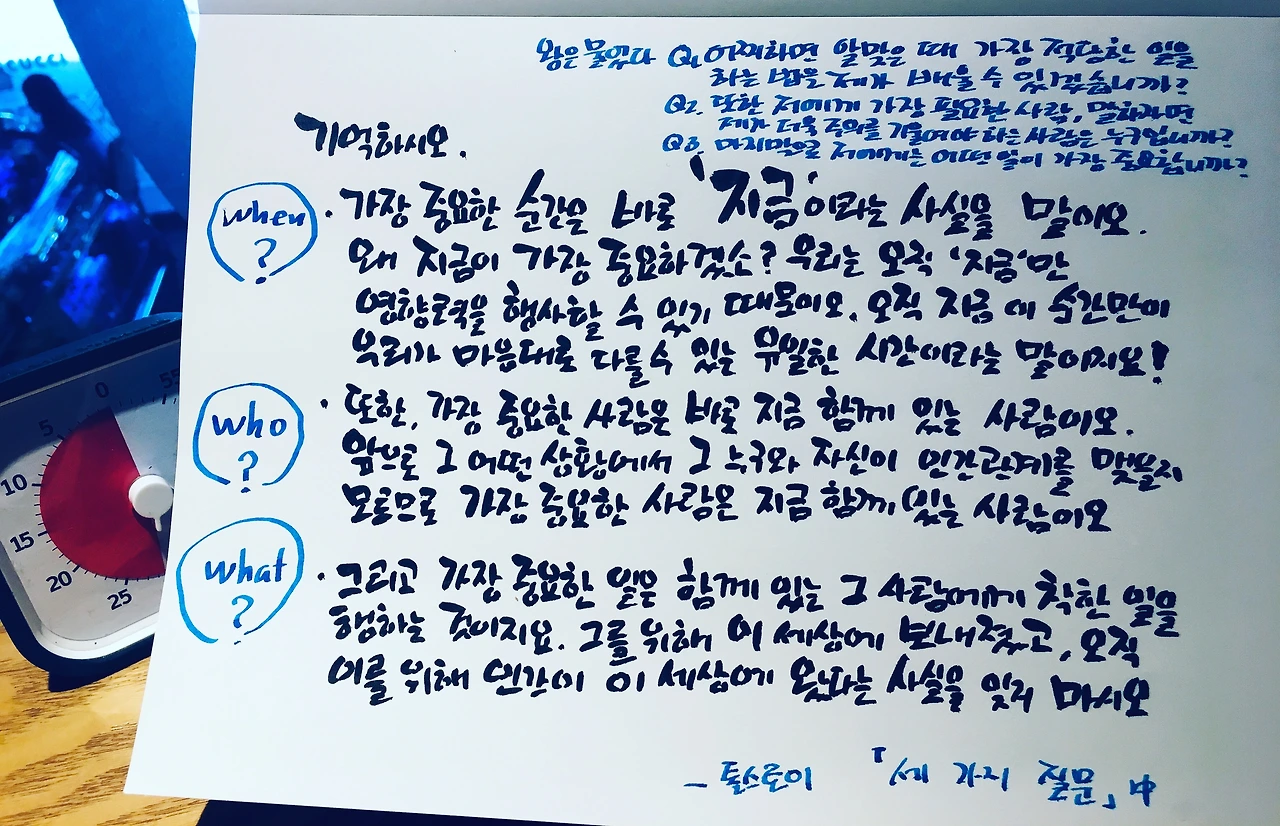 GUCCI
왕은 물었다 Q1. 어찌하면 알맞은 때 가장 적당한 일을
하는 법을 제가 배울 수 있겠습니까?
Q2. 또한 저에게 가장 필요한 사람, 말하자면
제가 더욱 주의를 기울여야 하는 사람은 누구입니까?
Q3. 마지막으로 저에게는 어떤 일이 가장 중요합니까?
기억하시오.
when
?
· 가장 중요한 순간은 바로 '지금'이라는 사실을 말이오.
왜 지금이 가장 중요하겠소? 우리는 오직 '지금'만
영향력을 행사할 수 있기 때문이오. 오직 지금 이 순간만이
우리가 마음대로 다룰 수 있는 유일한 시간이라는 말이지요!
who
?
· 또한, 가장 중요한 사람은 바로 지금 함께 있는 사람이오.
앞으로 그 어떤 상황에서 그 누구와 자신이 인간관계를 맺을지
모르므로 가장 중요한 사람은 지금 함께 있는 사람이오
what
?
· 그리고 가장 중요한 일은 함께 있는 그 사람에게 착한 일을
행하는 것이지요. 그를 위해 이 세상에 보내졌고, 오직
이를 위해 인간이 이 세상에 왔다는 사실을 잊지 마시오
- 톨스토이 「세 가지 질문」 中
0
55
5
10
15
20
25